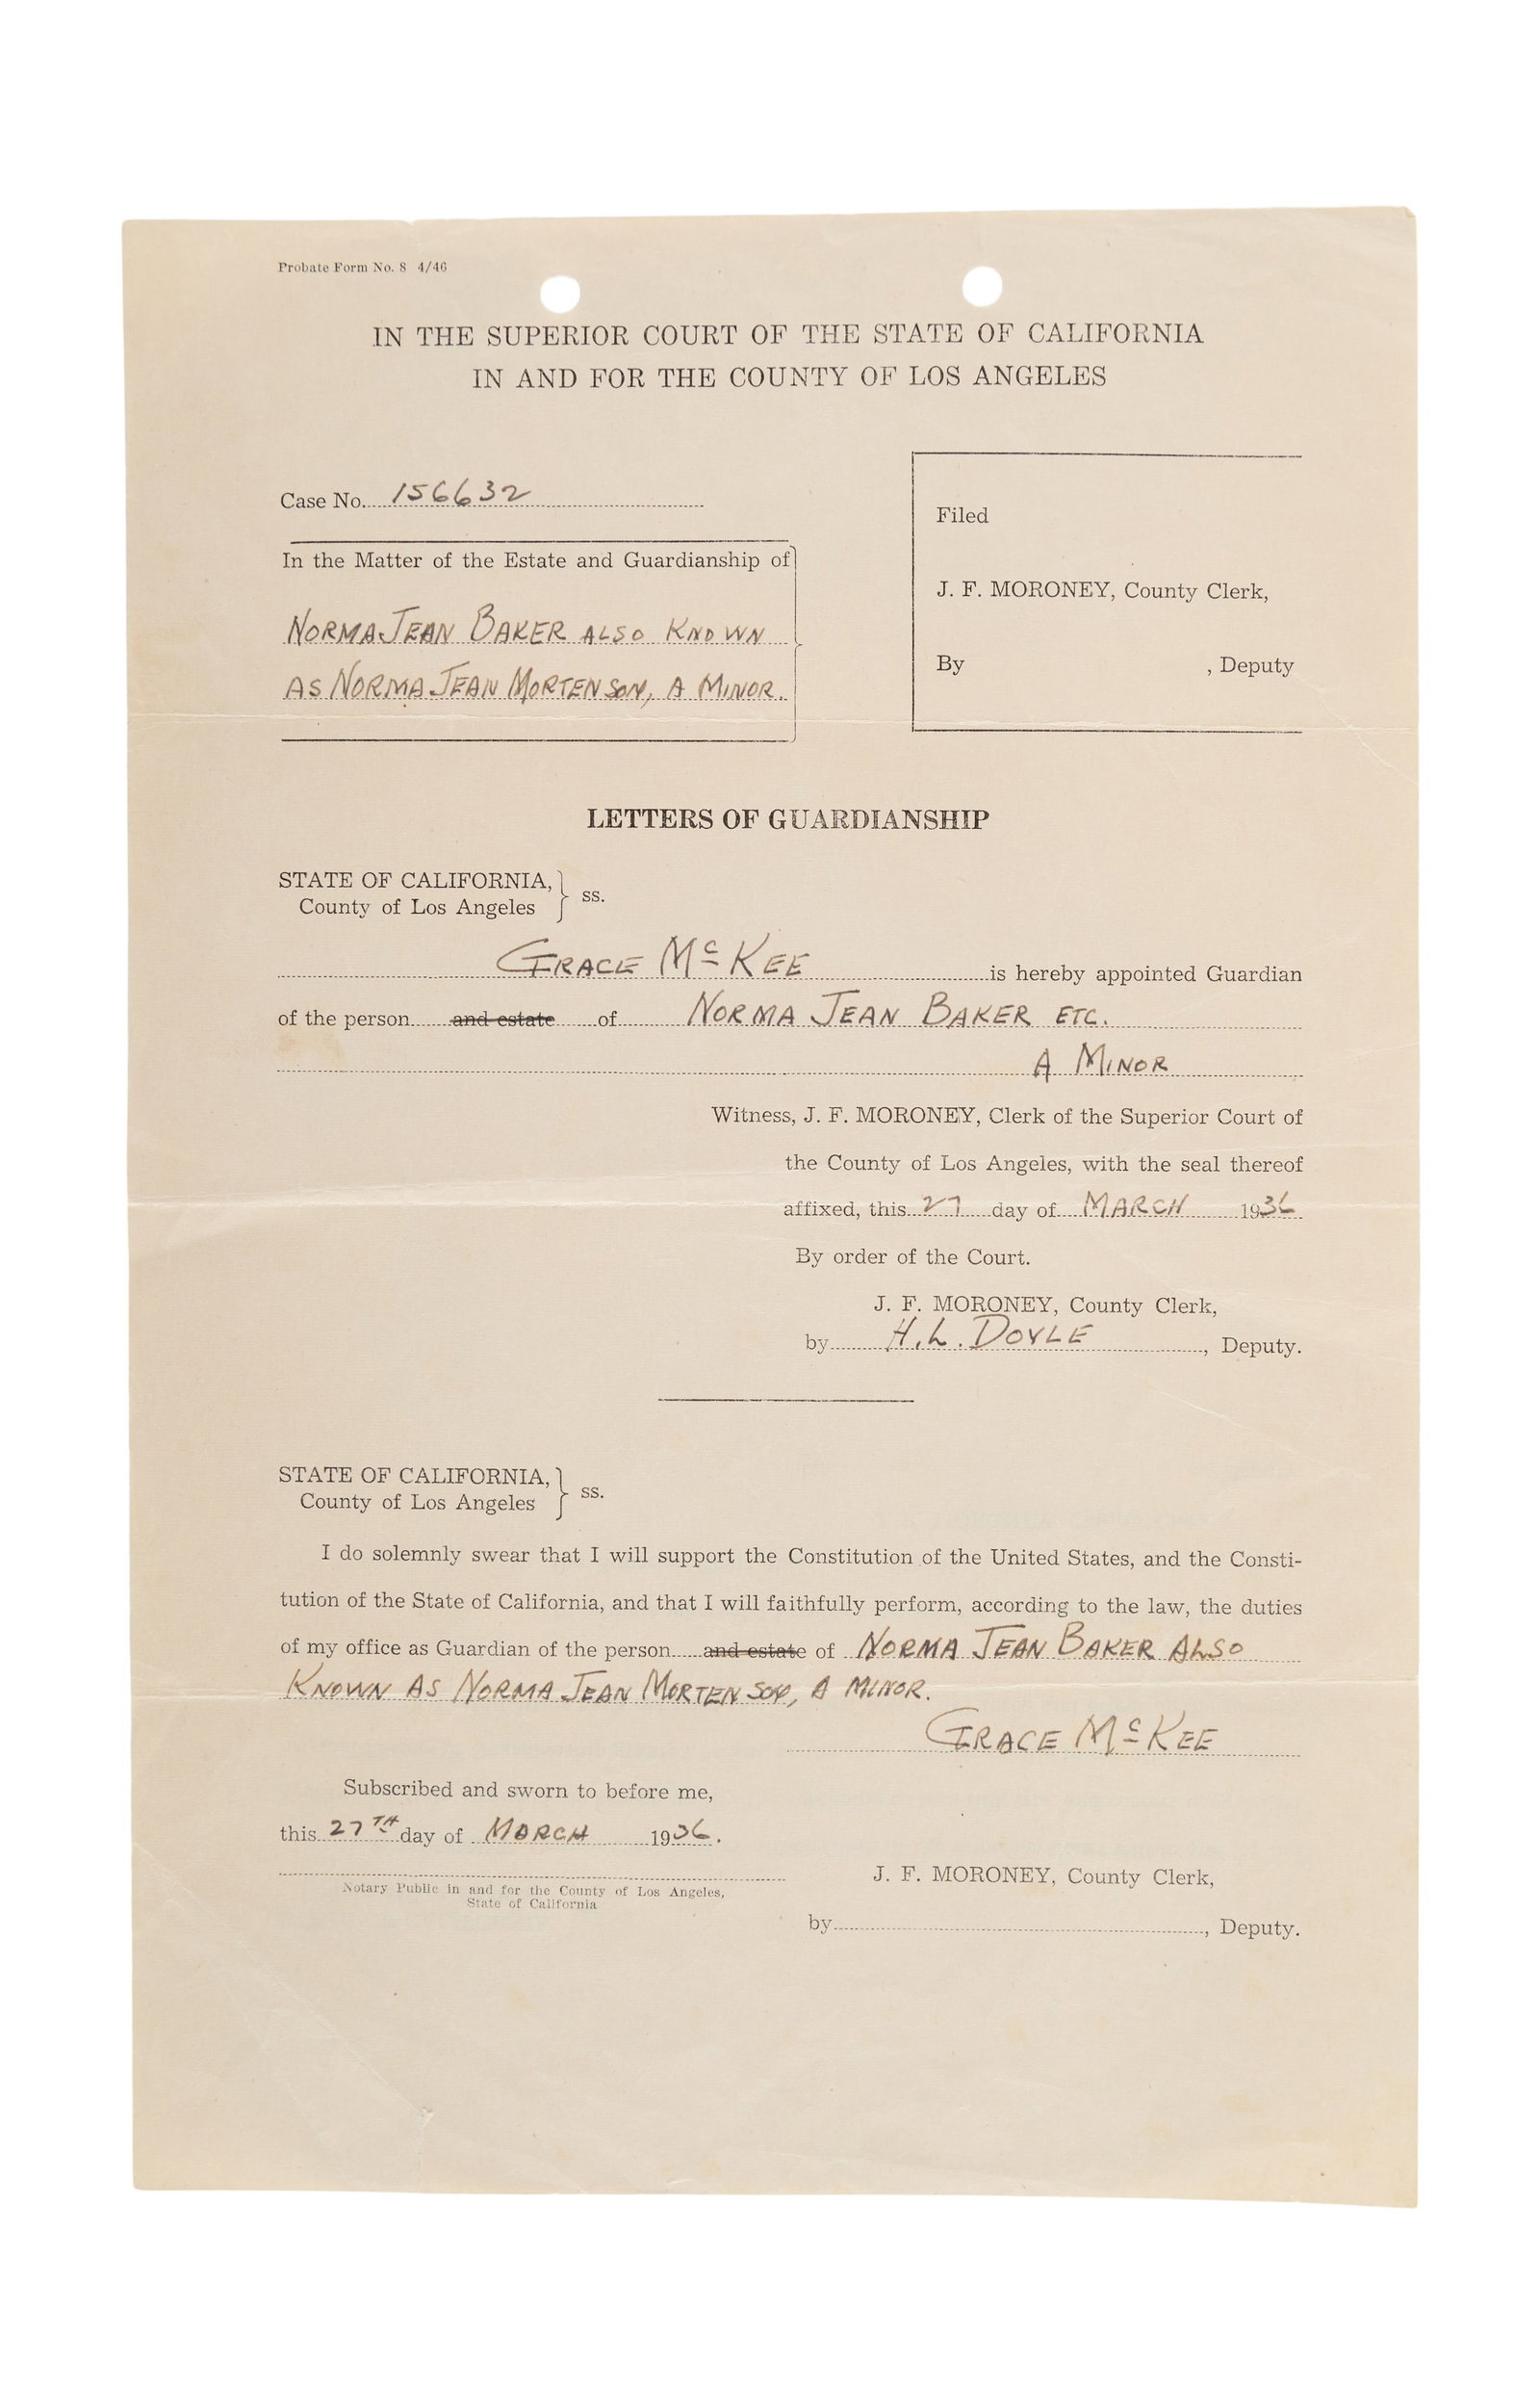 Probate Form No. 8 4/46
IN THE SUPERIOR COURT OF THE STATE OF CALIFORNIA
IN AND FOR THE COUNTY OF LOS ANGELES
Case No. 156632
In the Matter of the Estate and Guardianship of
NORMA JEAN BAKER ALSO KNOWN
AS NORMA JEAN MORTENSON, A MINOR.
Filed
J. F. MORONEY, County Clerk,
By , Deputy
LETTERS OF GUARDIANSHIP
STATE OF CALIFORNIA,
County of Los Angeles
ss.
GRACE McKEE is hereby appointed Guardian
of the person and estate of NORMA JEAN BAKER ETC.
A MINOR
Witness, J. F. MORONEY, Clerk of the Superior Court of
the County of Los Angeles, with the seal thereof
affixed, this 27 day of MARCH 1936
By order of the Court.
J. F. MORONEY, County Clerk,
by H. L. DOYLE, Deputy.
STATE OF CALIFORNIA,
County of Los Angeles
ss.
I do solemnly swear that I will support the Constitution of the United States, and the Consti-
tution of the State of California, and that I will faithfully perform, according to the law, the duties
of my office as Guardian of the person and estate of NORMA JEAN BAKER ALSO
KNOWN AS NORMA JEAN MORTENSON, A MINOR.
GRACE McKEE
Subscribed and sworn to before me,
this 27TH day of MARCH 1936.
Notary Public in and for the County of Los Angeles,
State of California
J. F. MORONEY, County Clerk,
by , Deputy.